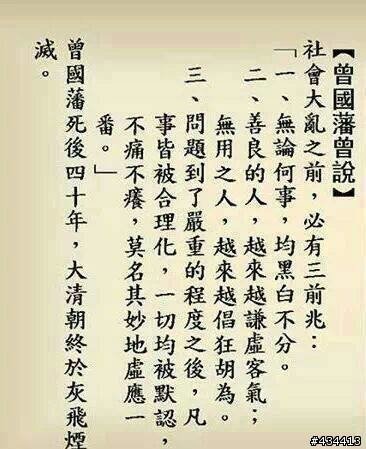 【曾國藩曾說】
社會大亂之前，必有三前兆：
「一、無論何事，均黑白不分。
二、善良的人，越來越謙虛客氣；
無用之人，越來越倡狂胡為。
三、問題到了嚴重的程度之後，凡
事皆被合理化，一切均被默認，
不痛不癢，莫名其妙地虛應一
番。」
曾國藩死後四十年，大清朝終於灰飛煙
滅。
#434413